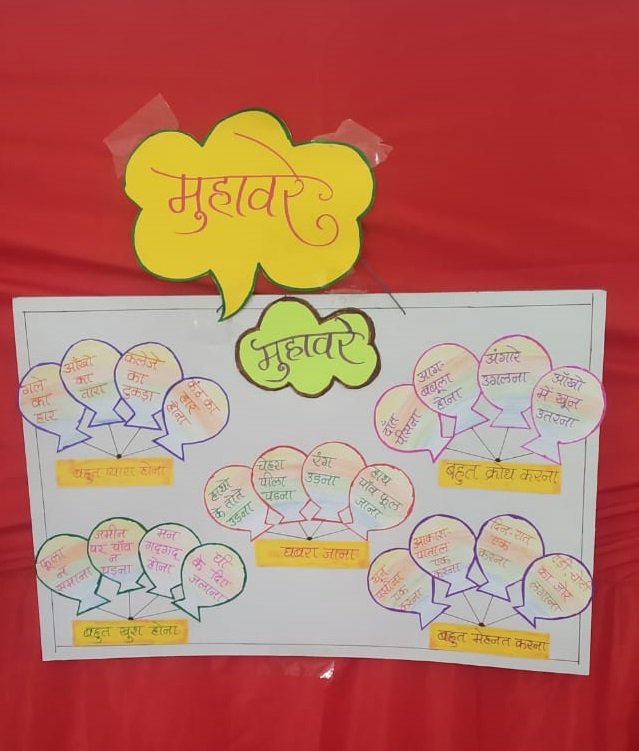 मुहावरे
मुहावरे
गले
का
हार
आँखो
का
तारा
कलेजे
का
टुकड़ा
का
होना
बहुत प्यारा होना
दाँत
पीसना
आग-
बबूला
होना
अंगारे
उगलना
आँखो
में खून
उतरना
बहुत क्रोध करना
हाथो
के तोते
उड़ना
चेहरा
पीला
पड़ना
रंग
उड़ना
हाथ
पाँव फूल
जाना
घबरा जाना
फूला
न
समाना
जमीन
पर पाँव
न
पड़ना
मन
गदगद
होना
घी
के दिए
जलाना
बहुत खुश होना
खून
पसीना
एक
करना
आकाश
पाताल
एक
करना
दिन-रात
एक
करना
एड़ी-चोटी
का जोर
लगाना
बहुत मेहनत करना